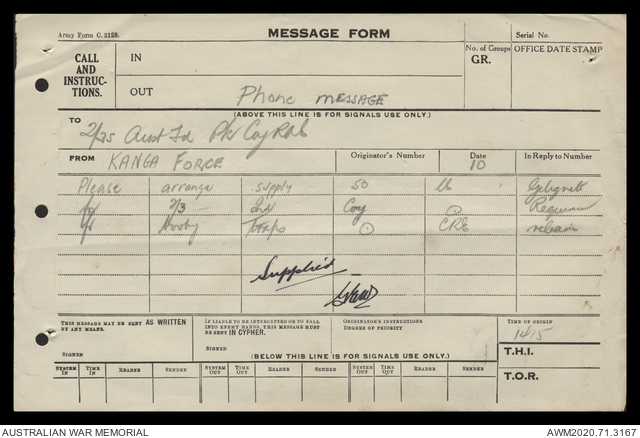 Army Form C. 2128.
MESSAGE FORM
Serial No
CALL AND INSTRUC-TIONS.
IN
No. of Groups GR.
OFFICE DATE STAMP
OUT
Phone message
(ABOVE THIS LINE IS FOR SIGNALS USE ONLY.)
TO
2/25 Aust Fd Pk Coy RAE
FROM KANGA FORCE
Originator's Number
Date 10
In Reply to Number
Please arrange supply 50 lb Gelignite
for 2/3 Ind Coy
for booby traps CRE
Supplied
THIS MESSAGE MAY BE SENT AS WRITTEN BY ANY MEANS.
SIGNED
IF LIABLE TO BE INTERCEPTED OR TO FALL INTO ENEMY HANDS, THIS MESSAGE MUST BE SENT IN CYPHER.
SIGNED
ORIGINATOR'S INSTRUCTIONS DEGREE OF PRIORITY
TIME OF ORIGIN
1415
(BELOW THIS LINE IS FOR SIGNALS USE ONLY.)
T.H.I.
SYSTEM IN TIME IN READER SENDER SYSTEM OUT TIME OUT READER SENDER SYSTEM OUT TIME OUT READER SENDER
T.O.R.
AUSTRALIAN WAR MEMORIAL
AWM2020.71.3167